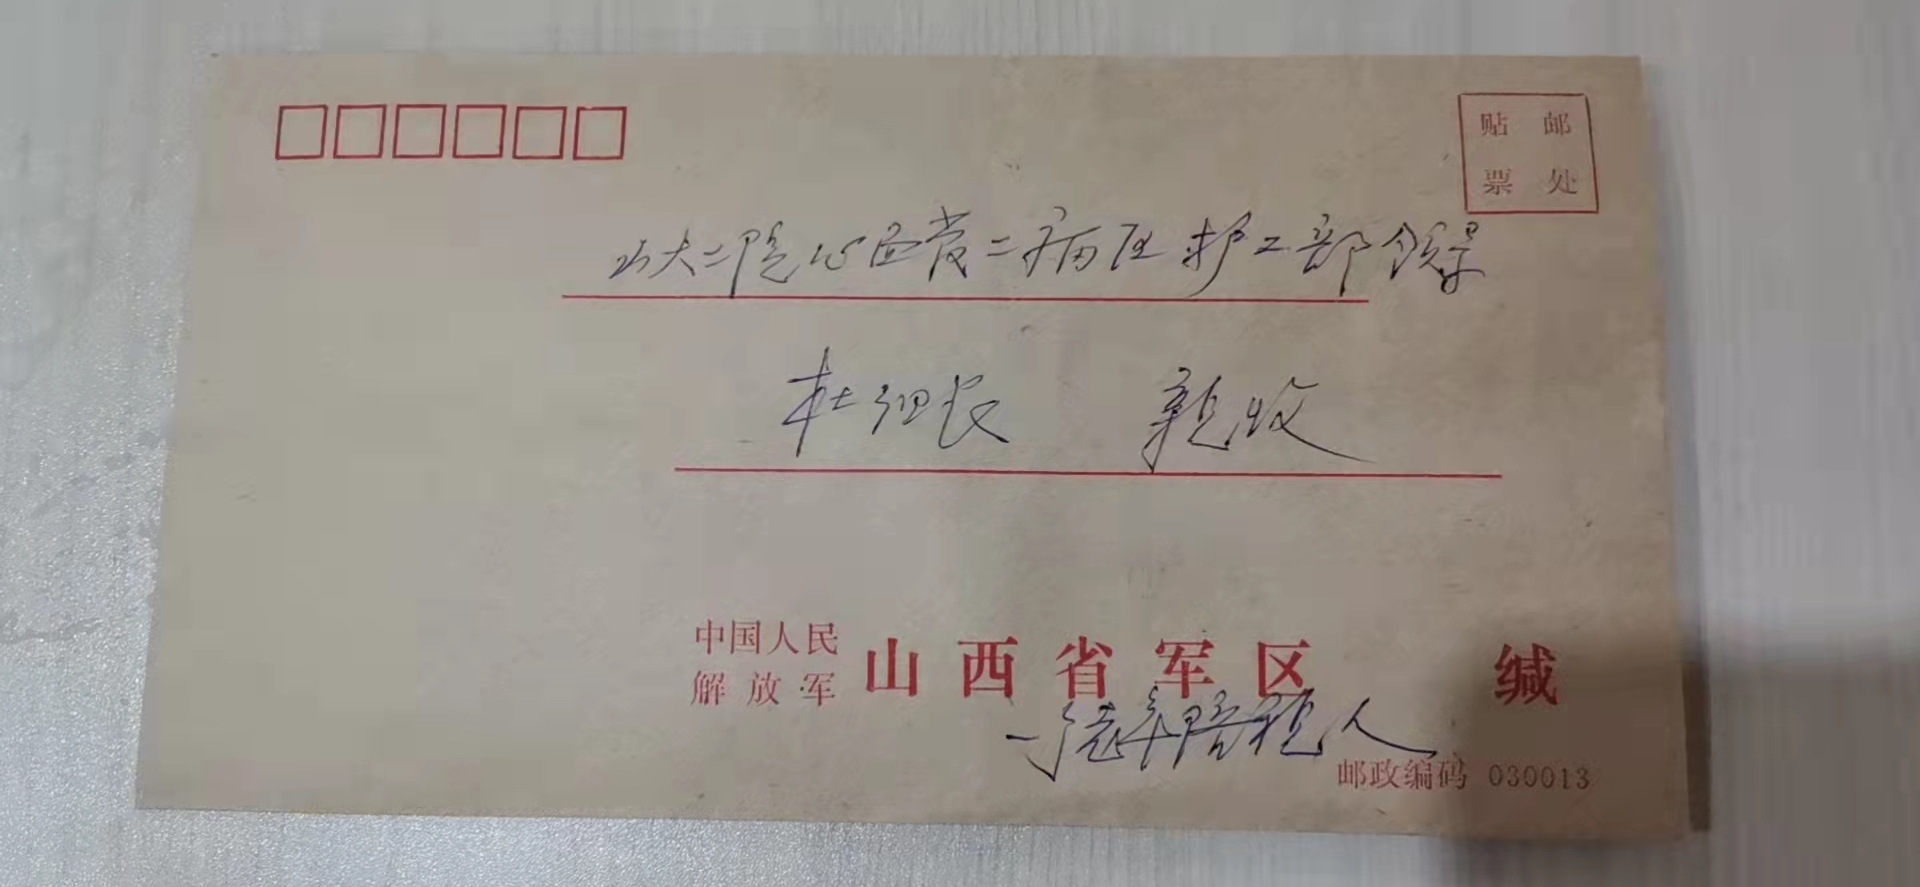 贴 邮
票 处
山大二院心血管二病区护工部领导
杜组长 亲收
中国人民
解放军 山西省军区 缄
一 老年陪视人
邮政编码 030013